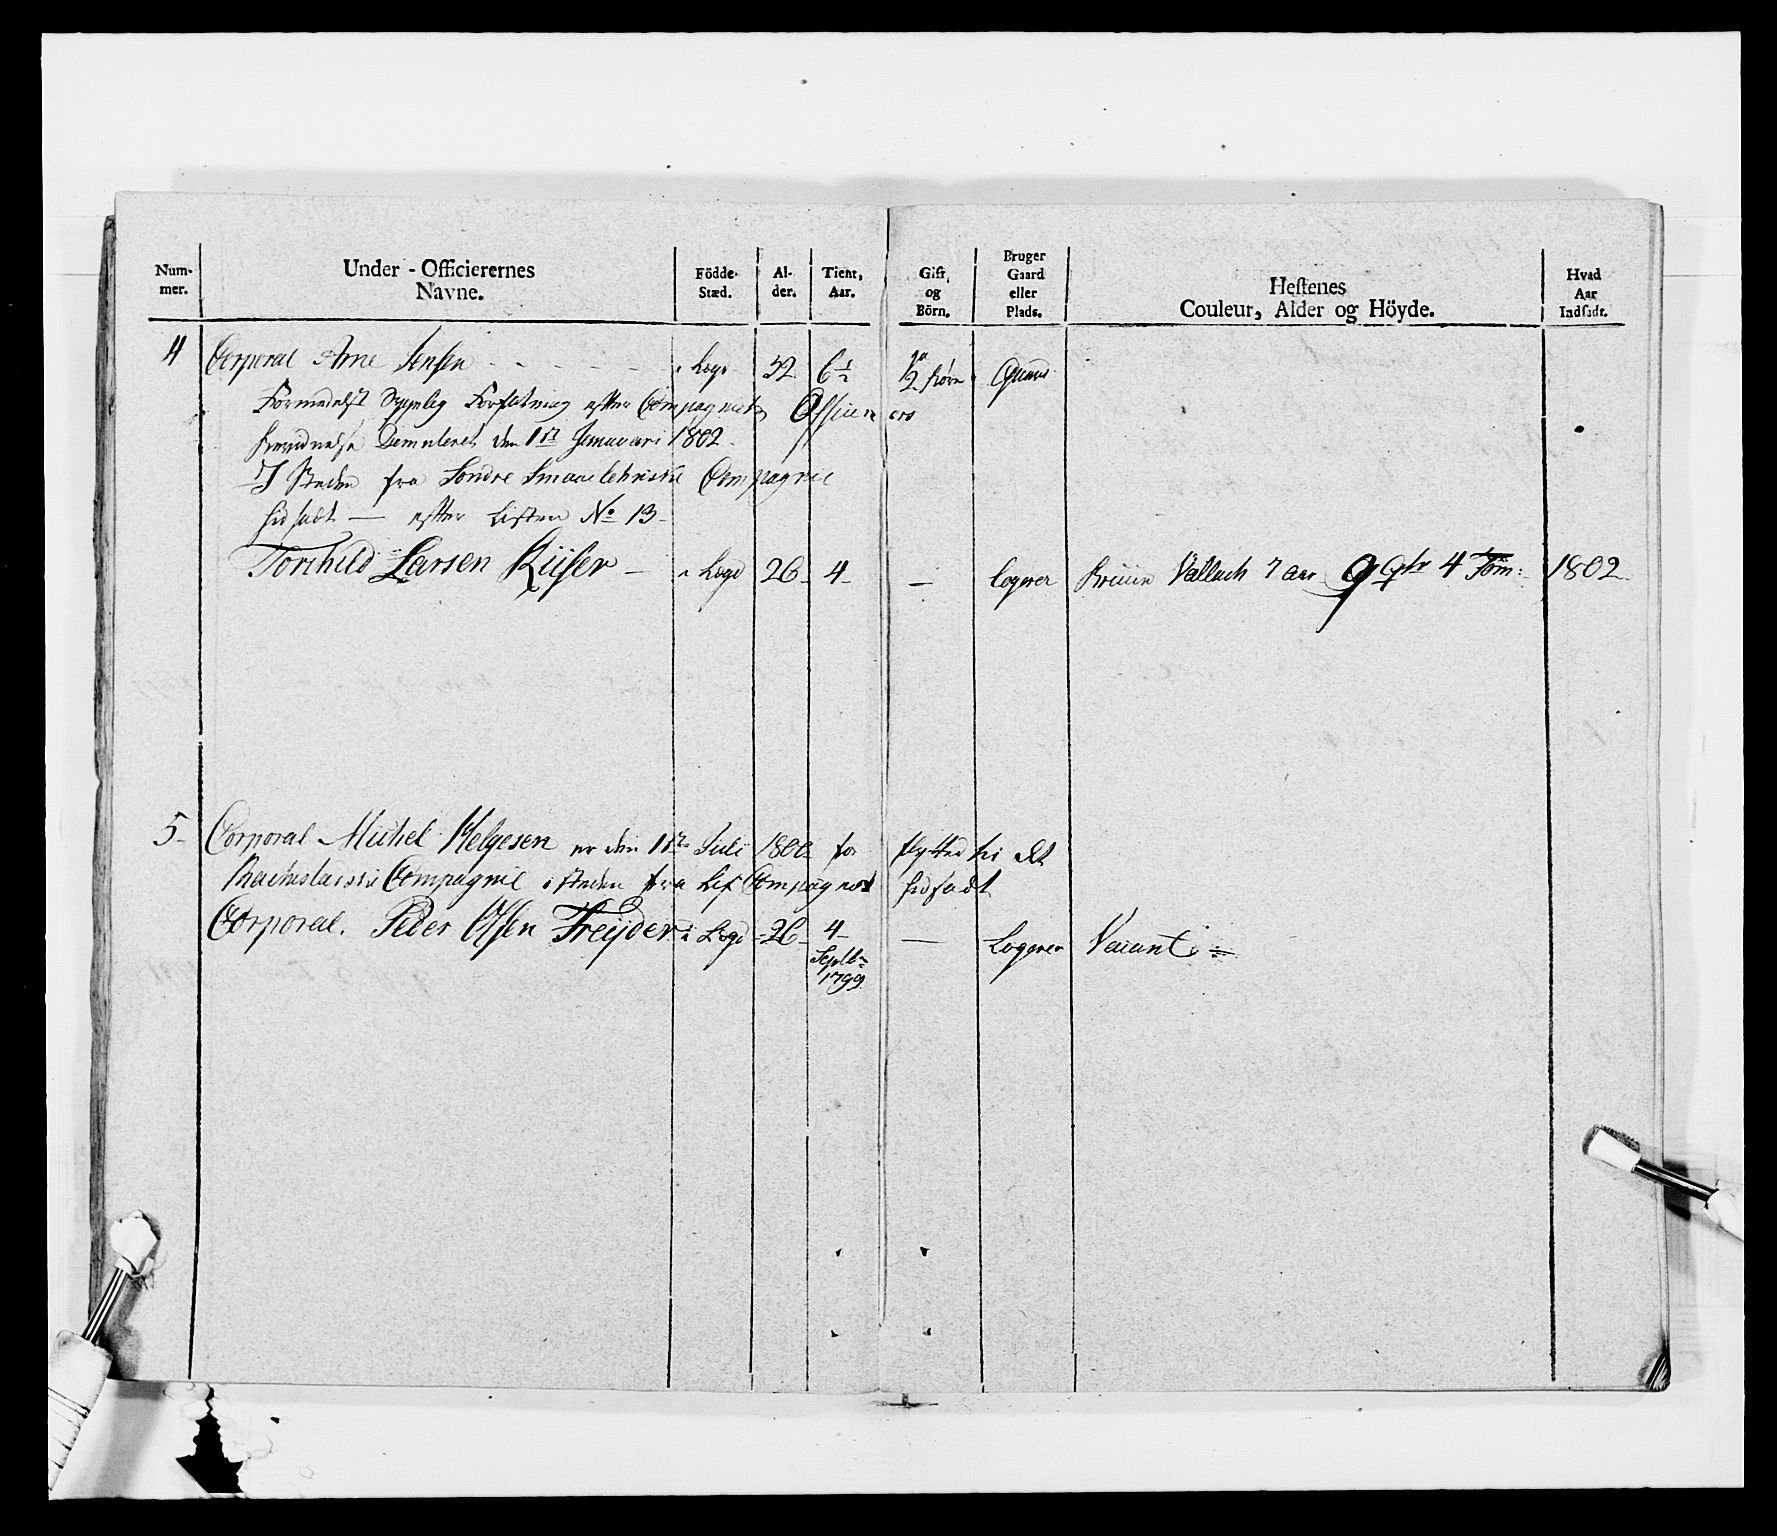 Num- mer.
Under - Officierernes Navne.
Födde- Stæd.
Al- der.
Tient, Aar.
Gift og Börn.
Bruger Gaard eller Plads.
Hestenes Couleur, Alder og Höyde.
Hvad Aar Indsadt.
4 Corporal Arne Jensen - - - - - i Logo 32 6½ ja 2 börn
Formedelst Sygelig Forfatning efter Compagniets Officierers
Demiteret den 1ste Januari 1802.
I Steden fra Söndre Smaalehnske Compagnie
hidsadt — efter Listen No 13
Torchild Larsen Kiiser — i Logo 26 4 — logerer Bruun Vallach 7 Aar 9 Qvtr 4 Tom: 1802
5 Corporal Michel Helgesen er den 1ste Julii 1800 forflytted til det
Compagnie i steden fra Lif Compagniet hidsadt
Corporal. Peder Olsen Freyder i Logo 26 4 — Logerer Vacant
Septbr 1799